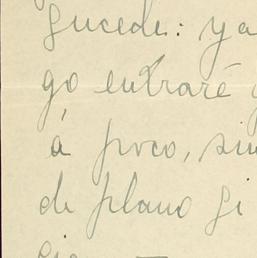 sucede: ya
go entraré
á poco, sin
de plano si